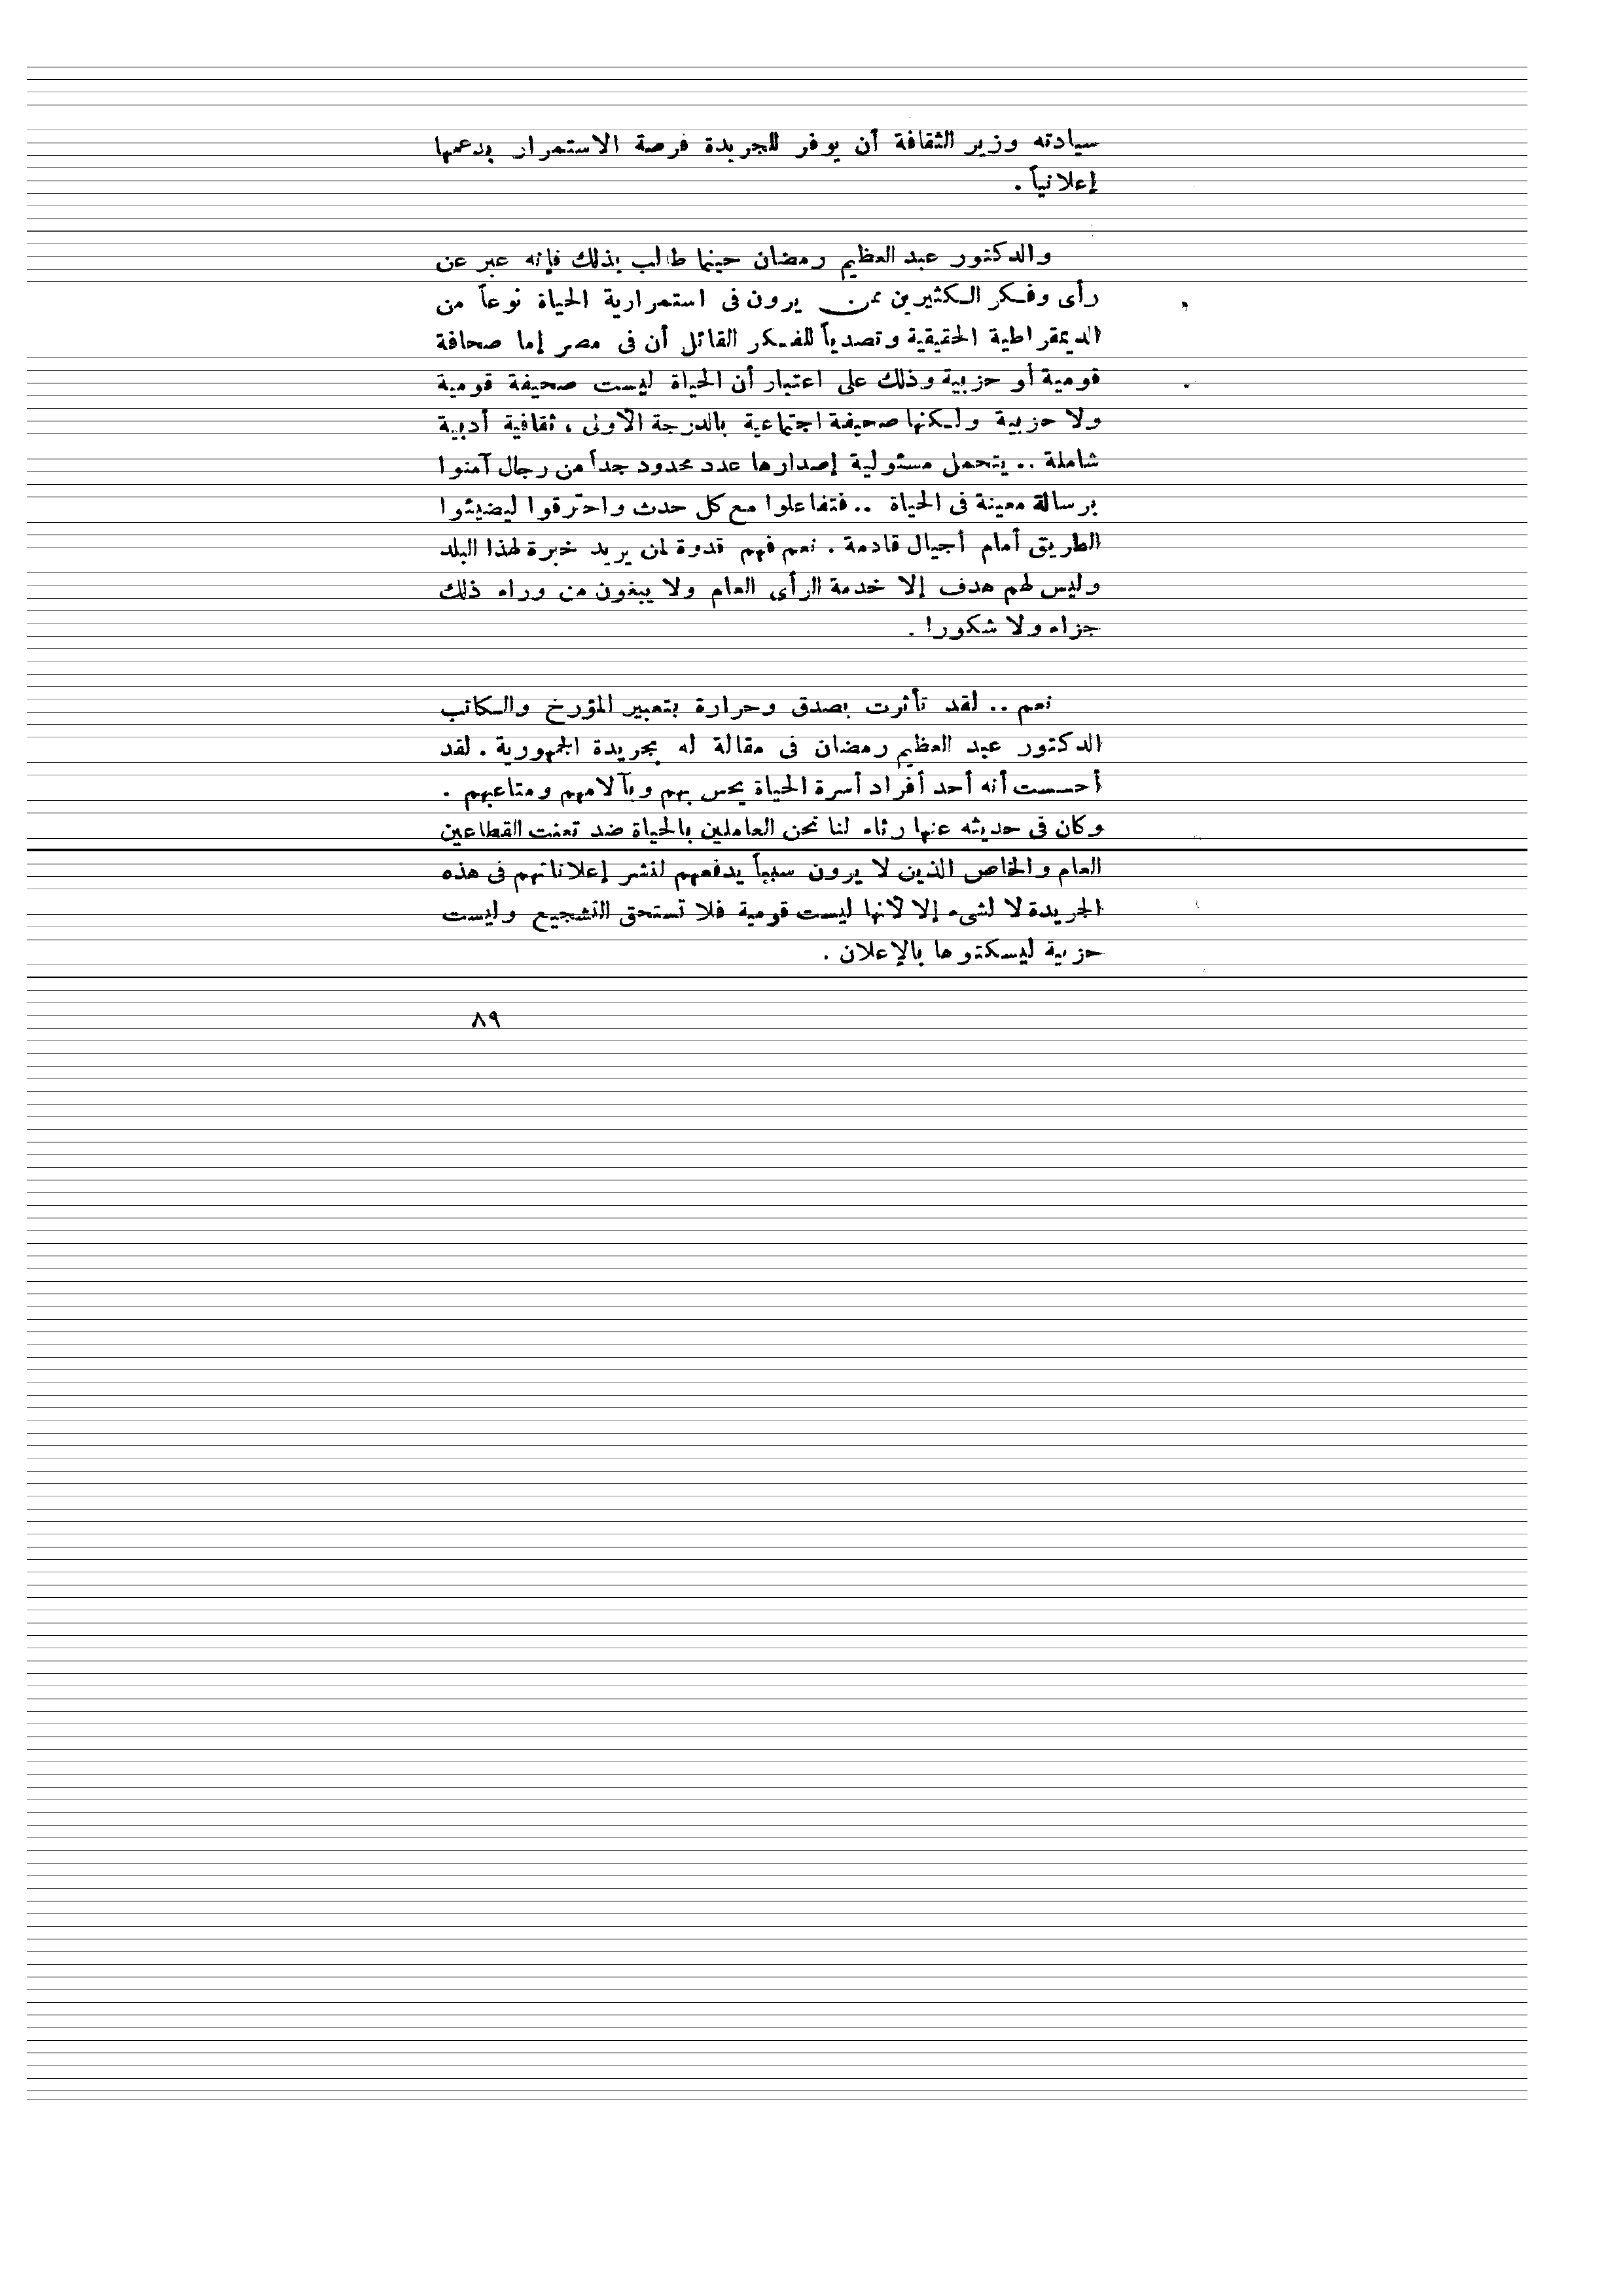 سيادته وزير الثقافة أن يوفر للجريدة فرصة الاستمرار بدعمها
إعلانياً .
والدكتور عبد العظيم رمضان حينما طالب بذلك فإنه عبر عن
رأى وفكر الكثيرين ممن يرون فى استمرارية الحياة نوعاً من
الديمقراطية الحقيقية وتصدياً للفكر القائل أن فى مصر إما صحافة
قومية أو حزبية وذلك على اعتبار أن الحياة ليست صحيفة قومية
ولا حزبية ولكنها صحيفة اجتماعية بالدرجة الأولى ، ثقافية أدبية
شاملة .. يتحمل مسئولية إصدارها عدد محدود جداً من رجال آمنوا
برسالة معينة فى الحياة .. فتفاعلوا مع كل حدث واحترقوا ليضيئوا
الطريق أمام أجيال قادمة . نعم فهم قدوة لمن يريد خبرة لهذا البلد
وليس لهم هدف إلا خدمة الرأى العام ولا يبغون من وراء ذلك
جزاء ولا شكورا .
نعم .. لقد تأثرت بصدق وحرارة بتعبير المؤرخ والكاتب
الدكتور عبد العظيم رمضان فى مقالة له بجريدة الجمهورية . لقد
أحسست أنه أحد أفراد أسرة الحياة يحس بهم وبآلامهم ومتاعبهم .
وكان فى حديثه عنها رثاء لنا نحن العاملين بالحياة ضد تعنت القطاعين
العام والخاص الذين لا يرون سبباً يدفعهم لنشر إعلاناتهم فى هذه
الجريدة لا لشىء إلا لأنها ليست قومية فلا تستحق التشجيع وليست
حزبية ليسكتوها بالإعلان .
٨٩